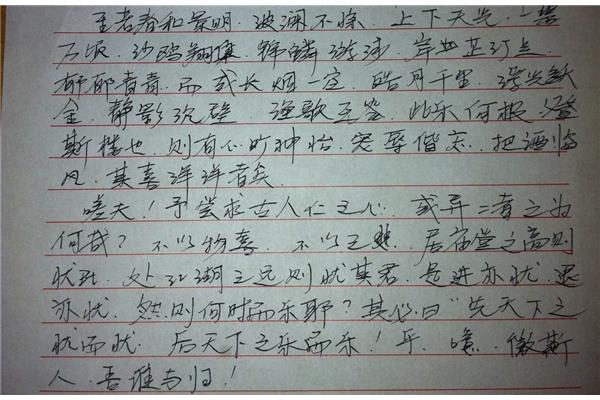 至若春和景明.波澜不惊.上下天光.一碧
万顷.沙鸥翔集.锦鳞游泳.岸芷汀兰.
郁郁青青.而或长烟一空.皓月千里.浮光跃
金.静影沉璧.渔歌互答.此乐何极.登
斯楼也.则有心旷神怡.宠辱偕忘.把酒临
风.其喜洋洋者矣.
嗟夫!予尝求古人仁之心.或异二者之为
何哉?不以物喜.不以己悲.居庙堂之高则
忧民.处江湖之远则忧其君.是进亦忧.退
亦忧.然则何时而乐耶?其必曰"先天下之
忧而忧.后天下之乐而乐!乎.噫.微斯
人.吾谁与归!